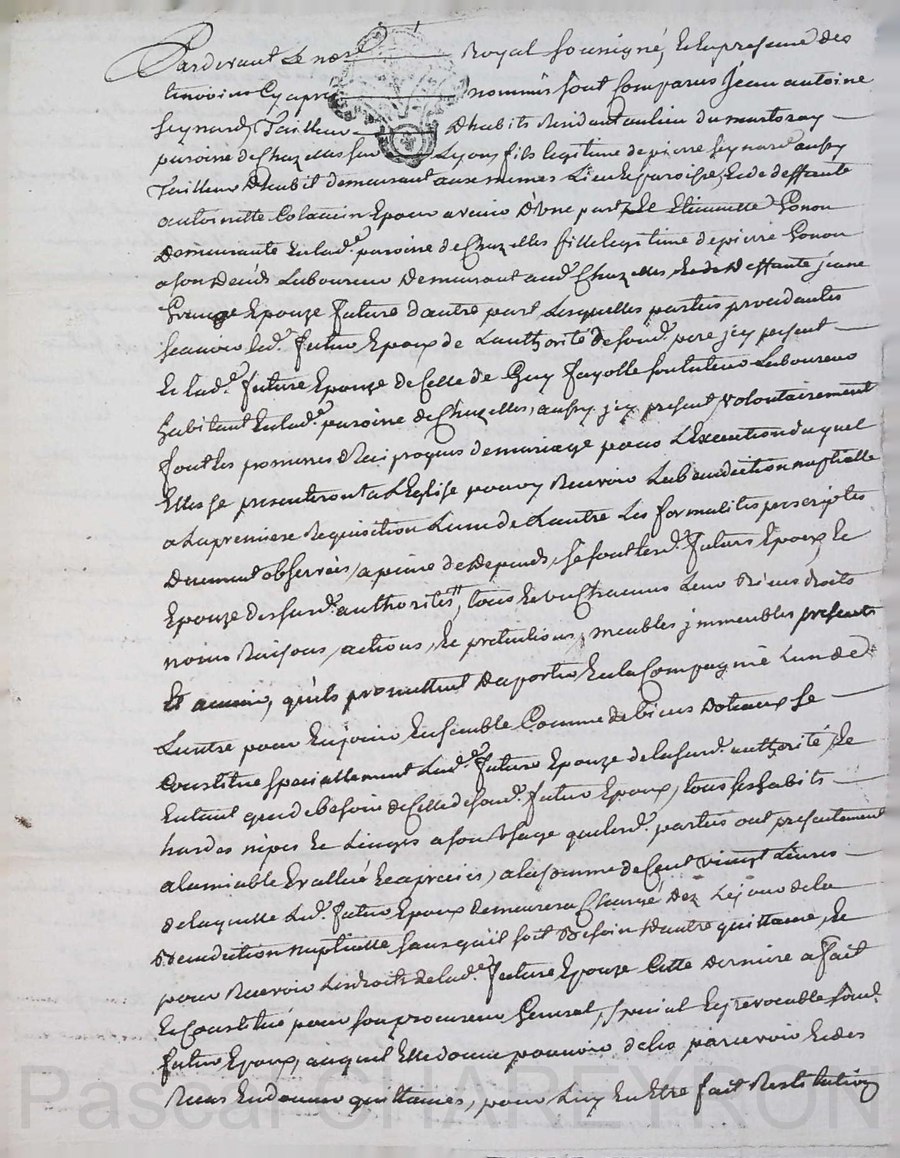 Pardevant Le nore Royal soussigné, et en presence des
temoins cy apres nommés sont Comparus Jean antoine
Seynard Tailleur D'habits Residant au lieu du martoray
paroisse de Chazelles sur Lyon, fils legitime de pierre Seynard aussy
Tailleur D'habit demeurant aux memes Lieu et paroisse, et de deffunte
antoinette Colamin Epoux avenir D'une part, Et Etiennette Gonon
Demeurante en lad.e paroisse de Chazelles fille legitime de pierre Gonon
a son Decés Laboureur Demeurant aud. Chazelles, et de Deffunte jeane
Grange Epouze future d'autre part Lesquelles parties procedantes
scavoir led. futur Epoux de L'authorité de sond. pere jcy present
Et lad.e future Epouze de Celle de Guy Fayolle son tuteur Laboureur
habitant en lad.e paroisse de Chazelles, aussy jcy present, volontairement
font les promesses Reciproques de mariage pour L'execution duquel
Elles se presenteront a L'Eglise pour y Recevoir La benediction nuptialle
a La premiere Requisition L'un de L'autre Les formalités prescriptes
Duement observées, a peine de Depends, se font lesd. futurs Epoux, Et
Epouze desd. authorités, tous et un Chacuns Leur Biens droits
noms Raisons, actions, et pretentions, meubles jmmeubles presents
Et avenir, qu'ils promettent D'aporter en la Compagnie L'un de
L'autre pour en jouir Ensemble Comme de biens Dotaux se
Constitue specialement lad.e future Epouze de la susd. authorité, Et
Entant que de besoin de Celle de sond. futur Epoux, tous ses habits
hardes nipes et Linges a son Usage que lesd. parties ont presentement
a lamiable Evallué et apreciés, a la somme de Cent vingt Livres
de laquelle Led. futur Epoux demeurera Chargé Dez Le jour de la
Benediction nuptialle sans qu'il soit Besoin d'autre quittance, Et
pour Recevoir Les droits de lad.e future Epouze Cette derniere a fait
Et Constitué pour son procureur General, special Et jrevocable sond.
futur Epoux, auquel Elle donne pouvoir de les percevoir et des
Reçus En donner quittances, pour Luy En Etre fait Restitution
Pascal CHAREYRON